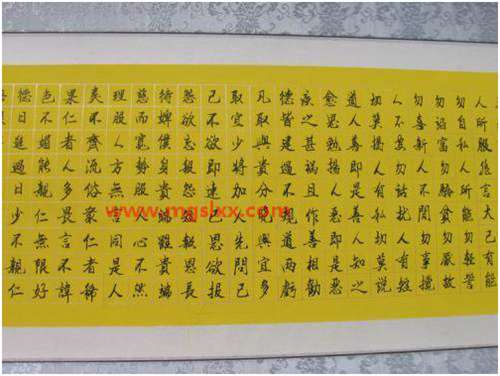 人所服非言大己有能
勿自私人所能勿輕訾
勿諂富勿驕貧勿厭故
勿喜新人不閒勿事攪
人不安勿話擾人有短
切莫揭人有私切莫說
道人善即是善人知之
愈思勉揚人惡即是惡
疾之甚禍且作善相勸
德皆建過不規道兩虧
凡取與貴分曉與宜多
取宜少將加人先問己
己不欲即速已恩欲報
怨欲忘報怨短報恩長
待婢僕身貴端雖貴端
慈而寬勢服人心不然
理服人方無言同是人
類不齊流俗眾仁者稀
果仁者人多畏言不諱
色不媚能親仁無限好
德日進過日少不親仁
www.mgslxx.com